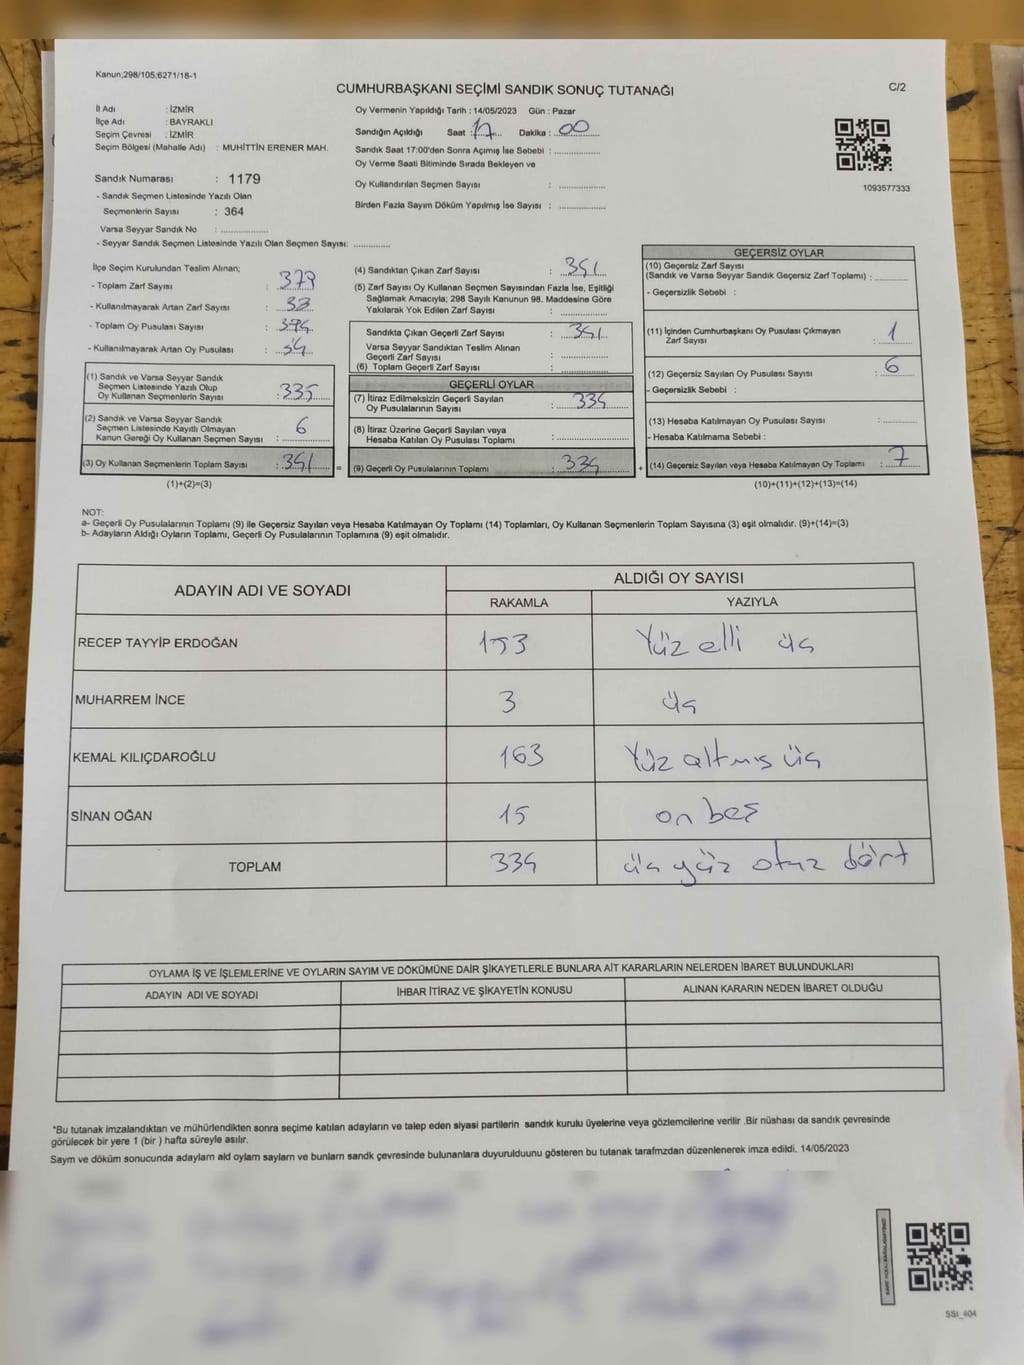 Kanun;298/105;6271/18-1
CUMHURBAŞKANI SEÇİMİ SANDIK SONUÇ TUTANAĞI
C/2
İl Adı : İZMİR
İlçe Adı : BAYRAKLI
Seçim Çevresi : İZMİR
Seçim Bölgesi (Mahalle Adı) : MUHİTTİN ERENER MAH.
Sandık Numarası : 1179
- Sandık Seçmen Listesinde Yazılı Olan
Seçmenlerin Sayısı : 364
Varsa Seyyar Sandık No : ..............
- Seyyar Sandık Seçmen Listesinde Yazılı Olan Seçmen Sayısı: ............
Oy Vermenin Yapıldığı Tarih : 14/05/2023 Gün : Pazar
Sandığın Açıldığı Saat : 17 Dakika : 00
Sandık Saat 17:00'den Sonra Açımış İse Sebebi : ..............
Oy Verme Saati Bitiminde Sırada Bekleyen ve
Oy Kullandırılan Seçmen Sayısı : ..............
Birden Fazla Sayım Döküm Yapılmış İse Sayısı : ..............
1093577333
İlçe Seçim Kurulundan Teslim Alınan;
- Toplam Zarf Sayısı :
- Kullanılmayarak Artan Zarf Sayısı :
- Toplam Oy Pusulası Sayısı :
- Kullanılmayarak Artan Oy Pusulası :
(1) Sandık ve Varsa Seyyar Sandık
Seçmen Listesinde Yazılı Olup
Oy Kullanan Seçmenlerin Sayısı : 335
(2) Sandık ve Varsa Seyyar Sandık
Seçmen Listesinde Kayıtlı Olmayan
Kanun Gereği Oy Kullanan Seçmen Sayısı : 6
(3) Oy Kullanan Seçmenlerin Toplam Sayısı : 341
(1)+(2)=(3)
(4) Sandıktan Çıkan Zarf Sayısı : 341
(5) Zarf Sayısı Oy Kullanan Seçmen Sayısından Fazla İse, Eşitliği
Sağlamak Amacıyla; 298 Sayılı Kanunun 98. Maddesine Göre
Yakılarak Yok Edilen Zarf Sayısı : ..............
Sandıkta Çıkan Geçerli Zarf Sayısı : 341
Varsa Seyyar Sandıktan Teslim Alınan
Geçerli Zarf Sayısı : ..............
(6) Toplam Geçerli Zarf Sayısı : ..............
GEÇERLİ OYLAR
(7) İtiraz Edilmeksizin Geçerli Sayılan
Oy Pusulalarının Sayısı : 334
(8) İtiraz Üzerine Geçerli Sayılan veya
Hesaba Katılan Oy Pusulası Toplamı : ..............
= (9) Geçerli Oy Pusulalarının Toplamı : 334 +
GEÇERSİZ OYLAR
(10) Geçersiz Zarf Sayısı
(Sandık ve Varsa Seyyar Sandık Geçersiz Zarf Toplamı) : ........
- Geçersizlik Sebebi :
(11) İçinden Cumhurbaşkanı Oy Pusulası Çıkmayan
Zarf Sayısı : 1
(12) Geçersiz Sayılan Oy Pusulası Sayısı : 6
- Geçersizlik Sebebi :
(13) Hesaba Katılmayan Oy Pusulası Sayısı : ........
- Hesaba Katılmama Sebebi :
(14) Geçersiz Sayılan veya Hesaba Katılmayan Oy Toplamı : 7
(10)+(11)+(12)+(13)=(14)
NOT:
a- Geçerli Oy Pusulalarının Toplamı (9) ile Geçersiz Sayılan veya Hesaba Katılmayan Oy Toplamı (14) Toplamları, Oy Kullanan Seçmenlerin Toplam Sayısına (3) eşit olmalıdır. (9)+(14)=(3)
b- Adayların Aldığı Oyların Toplamı, Geçerli Oy Pusulalarının Toplamına (9) eşit olmalıdır.
ADAYIN ADI VE SOYADI
ALDIĞI OY SAYISI
RAKAMLA YAZIYLA
RECEP TAYYİP ERDOĞAN 153 Yüz elli üç
MUHARREM İNCE 3 üç
KEMAL KILIÇDAROĞLU 163 Yüz altmış üç
SİNAN OĞAN 15 on beş
TOPLAM 334 üç yüz otuz dört
OYLAMA İŞ VE İŞLEMLERİNE VE OYLARIN SAYIM VE DÖKÜMÜNE DAİR ŞİKAYETLERLE BUNLARA AİT KARARLARIN NELERDEN İBARET BULUNDUKLARI
ADAYIN ADI VE SOYADI İHBAR İTİRAZ VE ŞİKAYETİN KONUSU ALINAN KARARIN NEDEN İBARET OLDUĞU
*Bu tutanak imzalandıktan ve mühürlendikten sonra seçime katılan adayların ve talep eden siyasi partilerin sandık kurulu üyelerine veya gözlemcilerine verilir .Bir nüshası da sandık çevresinde
görülecek bir yere 1 (bir ) hafta süreyle asılır.
Sayım ve döküm sonucunda adaylam ald oylam saylarn ve bunlarn sandk çevresinde bulunanlara duyurulduunu gösteren bu tutanak tarafmzdan düzenlenerek imza edildi. 14/05/2023
SSI_404